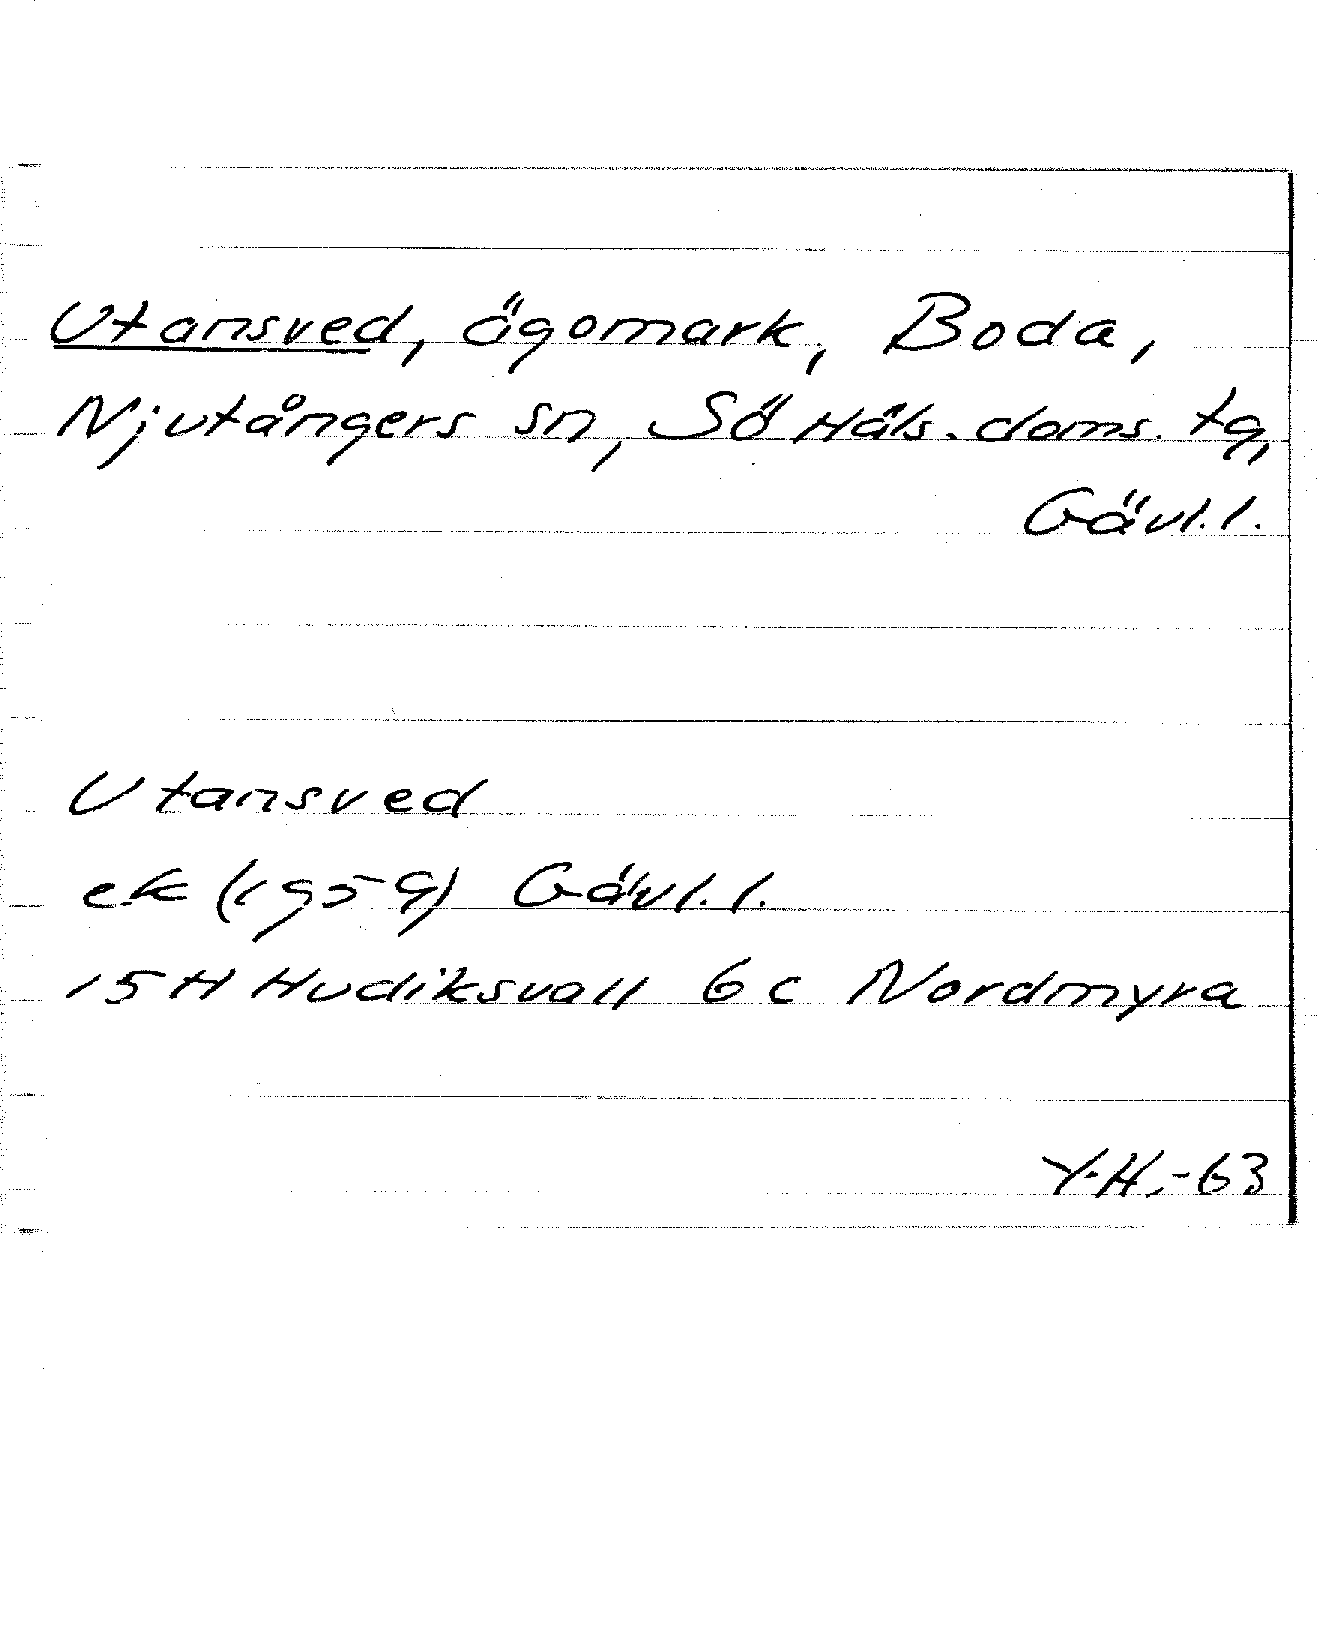 Utansved, ägomark, Boda,
Njutångers sn, Sö Häls. doms. tg,
Gävl.l.
Utansved
ek (1959) Gävl.l.
15H Hudiksvall 6c Nordmyra
Y.H.-63